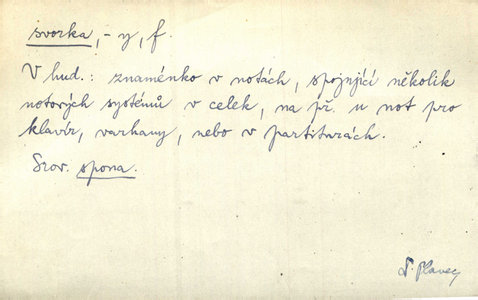 svorka, -y, f.
V hud.: znaménko v notách, spojující několik
notových systémů v celek, na př. u not pro
klavír, varhany, nebo v partiturách.
Srov. spona.
J. Plavec